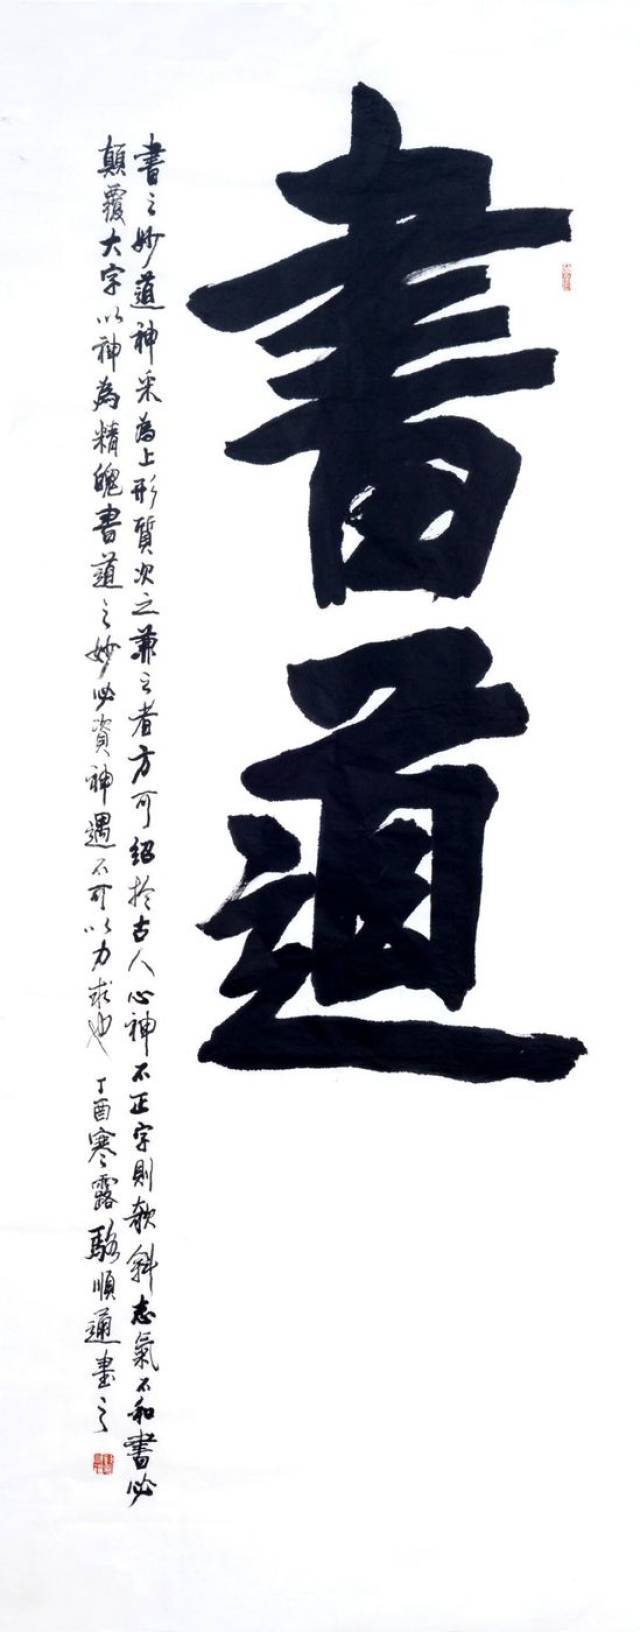 書道
書之妙道神采為上形質次之兼之者方可紹於古人心神不正字則欹斜志氣不和書必
顛覆大字以神為精魄書道之妙必資神遇不可以力求也 丁酉寒露駱順道書之